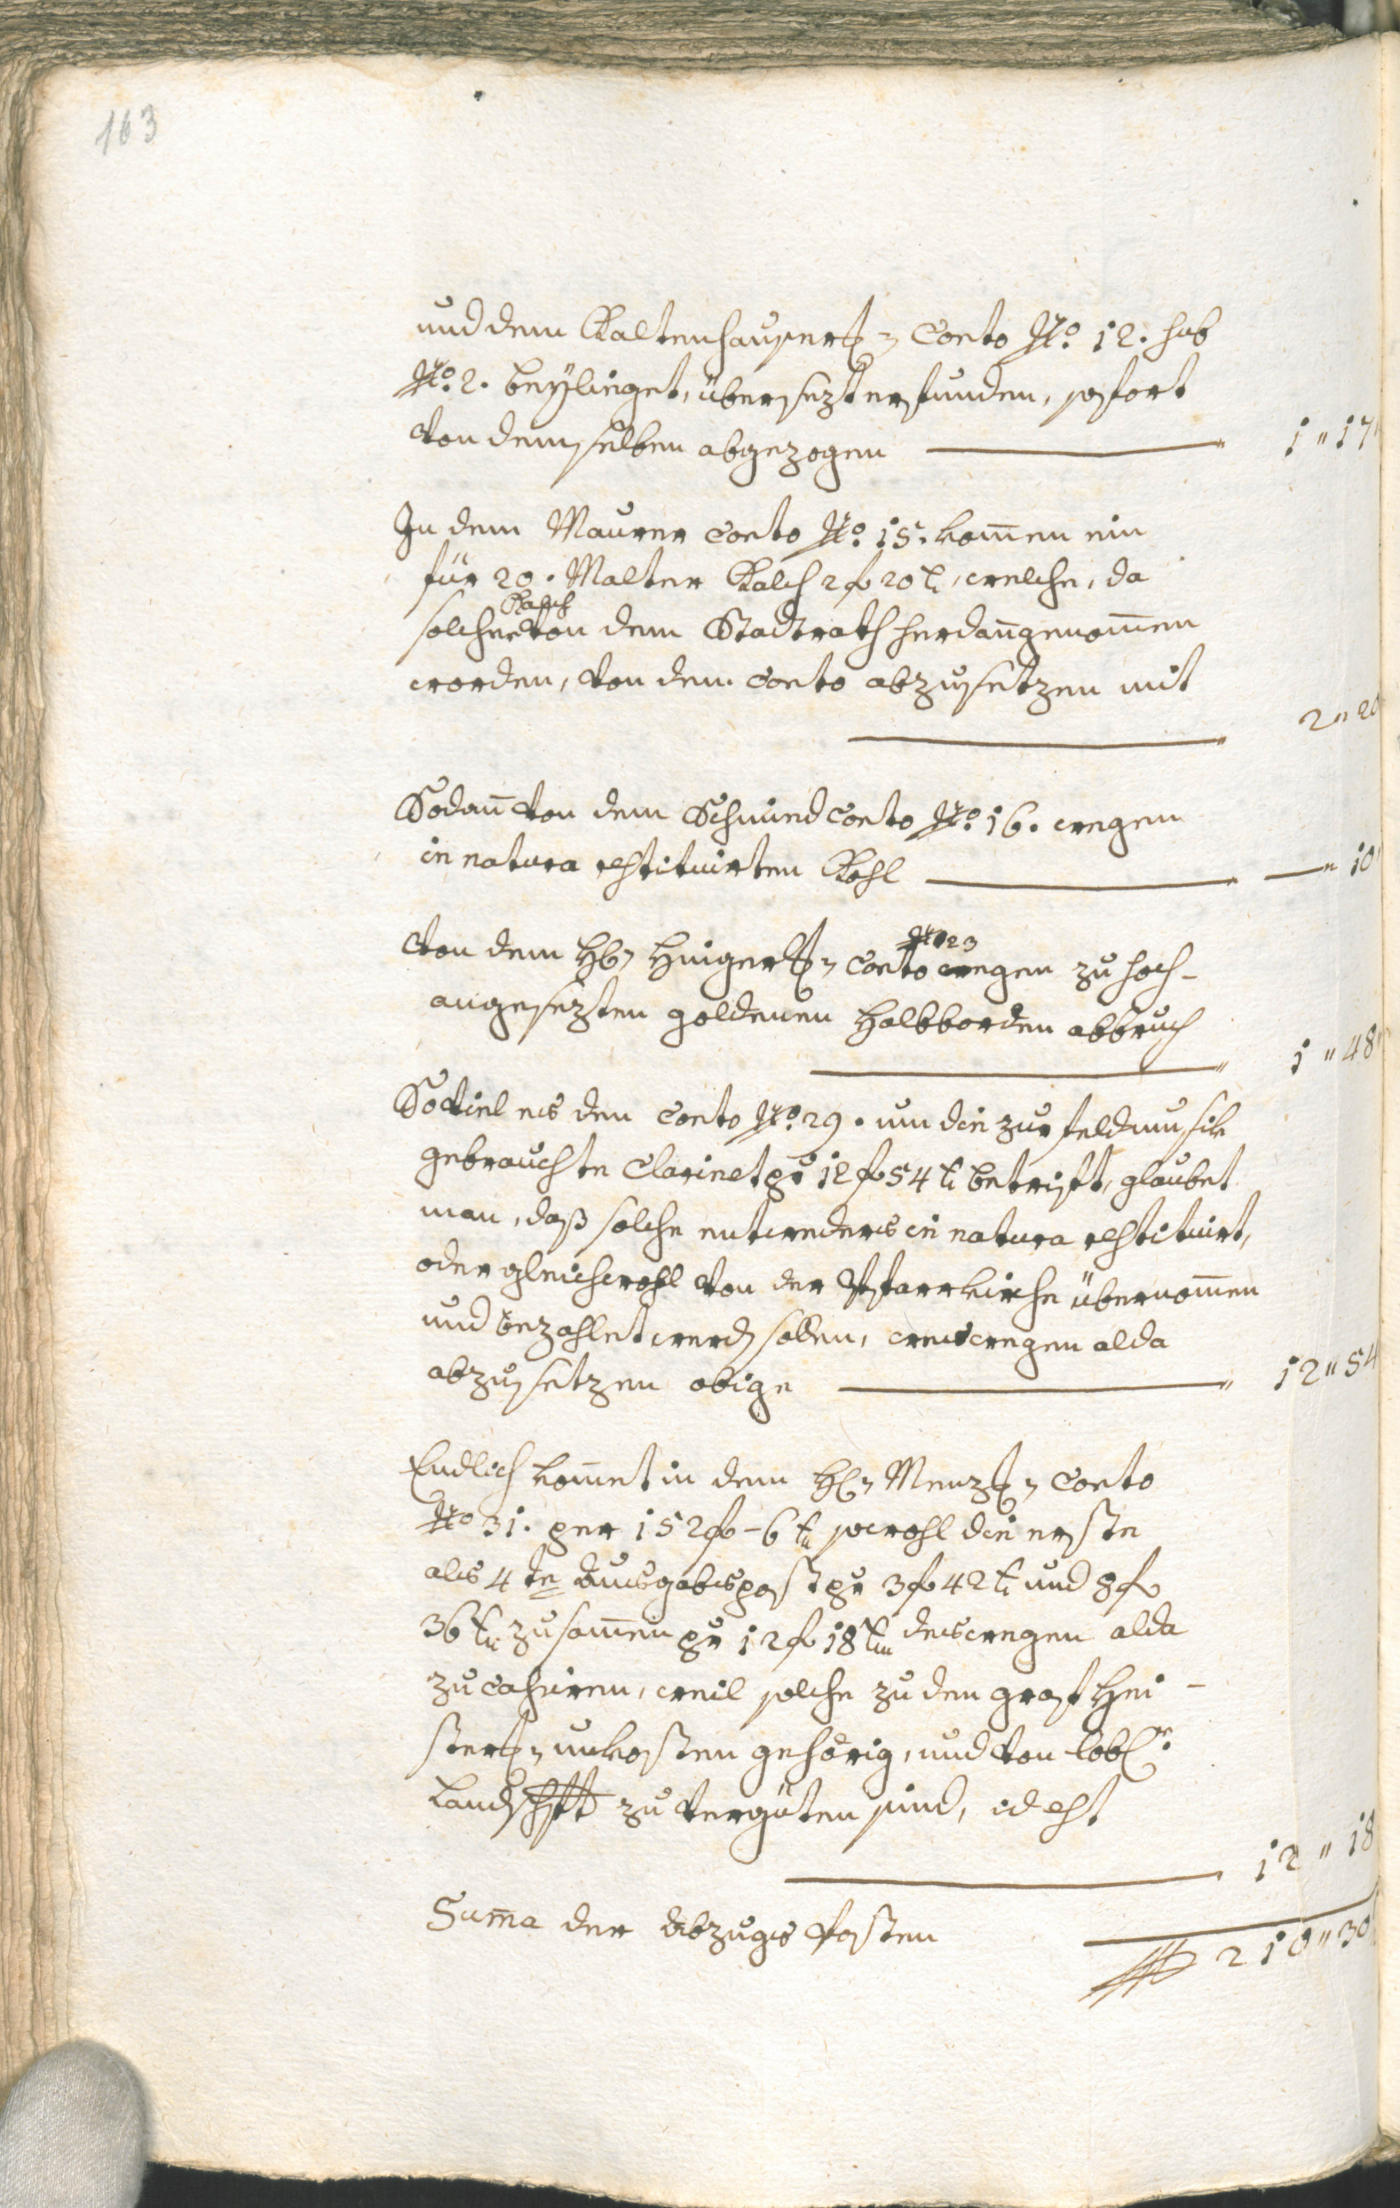 163
und dem Kaltenhauserischen Conto No. 12. sub
No. 2. beyliegt, übersezt erfunden, sofort
von demselben abgezogen — 1 " 17
In dem Maurer Conto No. 15. kom̄en ein
für 20. Malter Kalch 2 f 20 x, welche, da
Kalch
solcher von dem Stadtrath herdan̄genom̄en
worden, von dem Conto abzusetzen mit
— 2 " 20
Sodan̄ von dem Schmied Conto No. 16. wegen
in natura restituirten Kohl — — " 10
No 23
von dem H. Conto wegen zu hoch-
angesezten goldenen Halbborden abbruch
— 1 " 48
Soviel es den Conto No. 29. um die zur feldmusik
gebrauchte Clarinet pr 12 f 54 x betrift, glaubet
man, daß solche entweders in natura restituirt,
oder gleichwohl von der Pfarrkirche übernom̄en
und bezahlet werden sollen, weswegen alda
abzusetzen obige — 12 " 54
Endlich kom̄et in dem H. Menzischen Conto
No 31. per 152 f - 6 x sowohl die erste
als 4te Ausgabspost pr 3 f 42 x und 8 f
36 x zusam̄en pr 12 f 18 x deswegen alda
zu cassiren, weil solche zu den graf Hei-
sterischen unkosten gehörig, und von löbl.
Landschaft zu vergüten sind, id est
— 12 " 18
Sum̄a der Abzugs Posten — 210 " 30